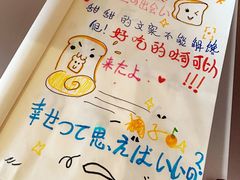 出会い
甜甜的文案不能解馋
但！好吃的吐司可以
来たよ !!!
幸せって思えばいいの?